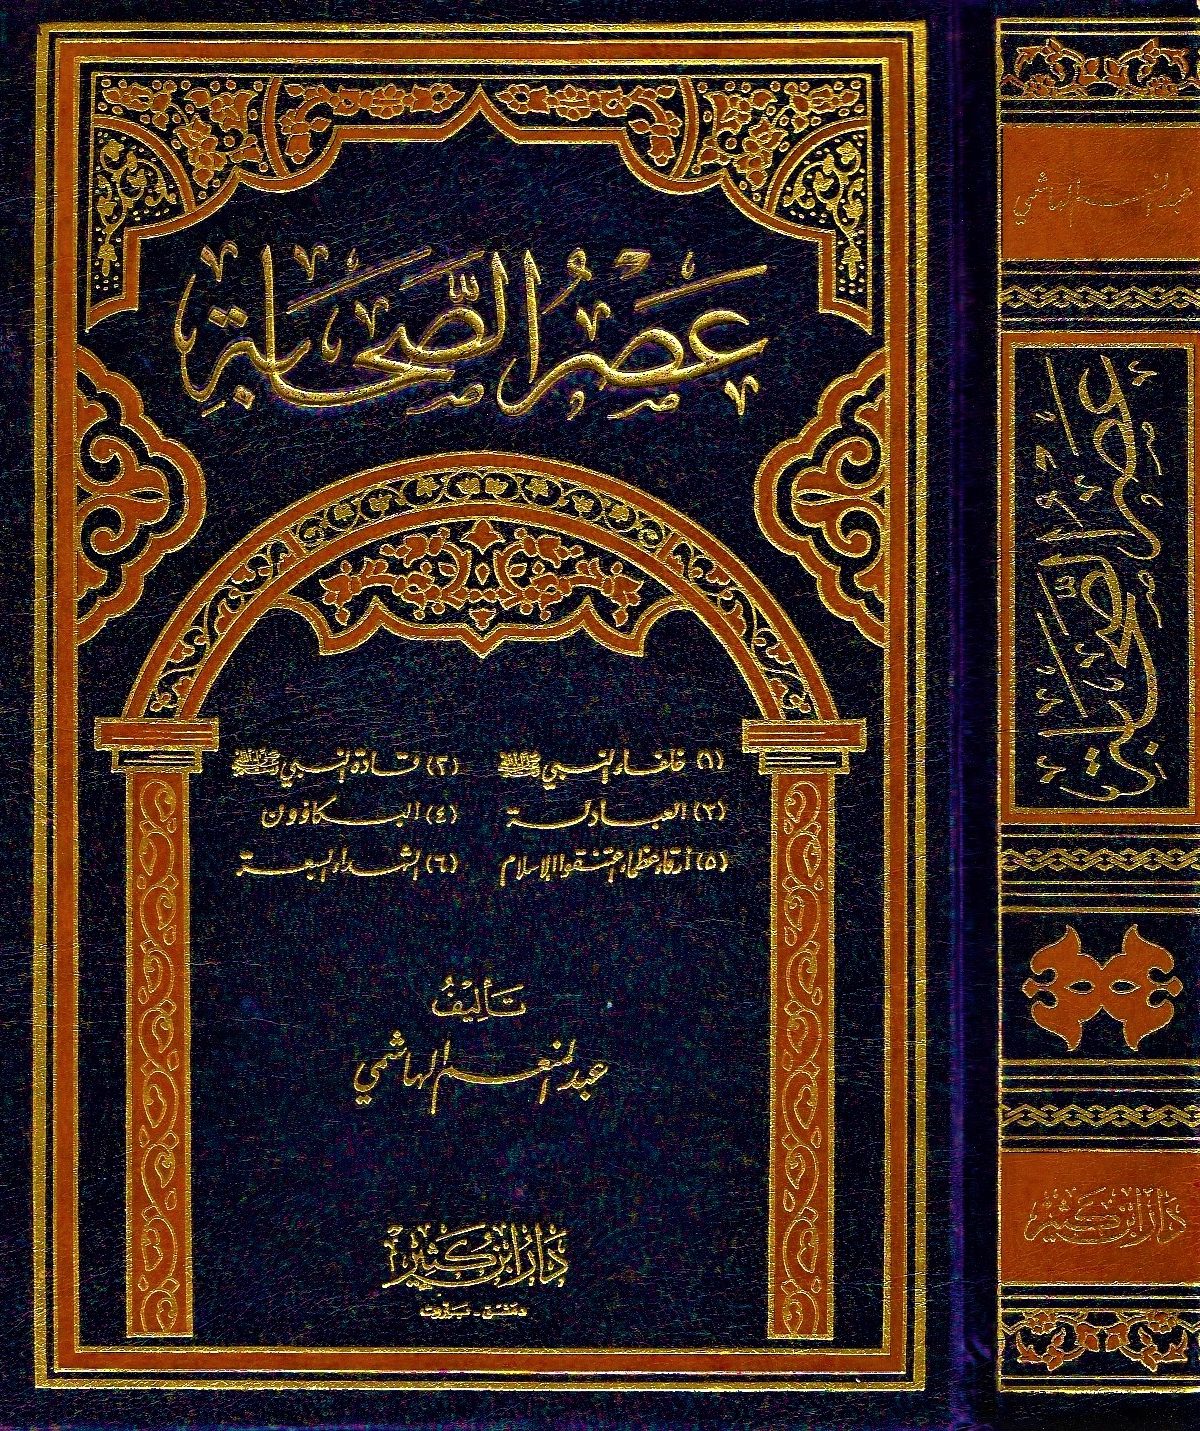 عَصْرُ الصَّحَابَةِ
(١) خلفاء النبي ﷺ (٢) قادة النبي ﷺ
(٣) العبادلة (٤) البكاؤون
(٥) أرقاء عظماء اعتنقوا الإسلام (٦) الشهداء السبعة
تَأليفُ
عبد المنعم الهاشمي
دَارُ ابْنِ كَثِيْر
دمَشق - بَيروت
عبد المنعم الهاشمي
عَصْرُ الصَّحَابَةِ
دَارُ ابْنِ كَثِيْر